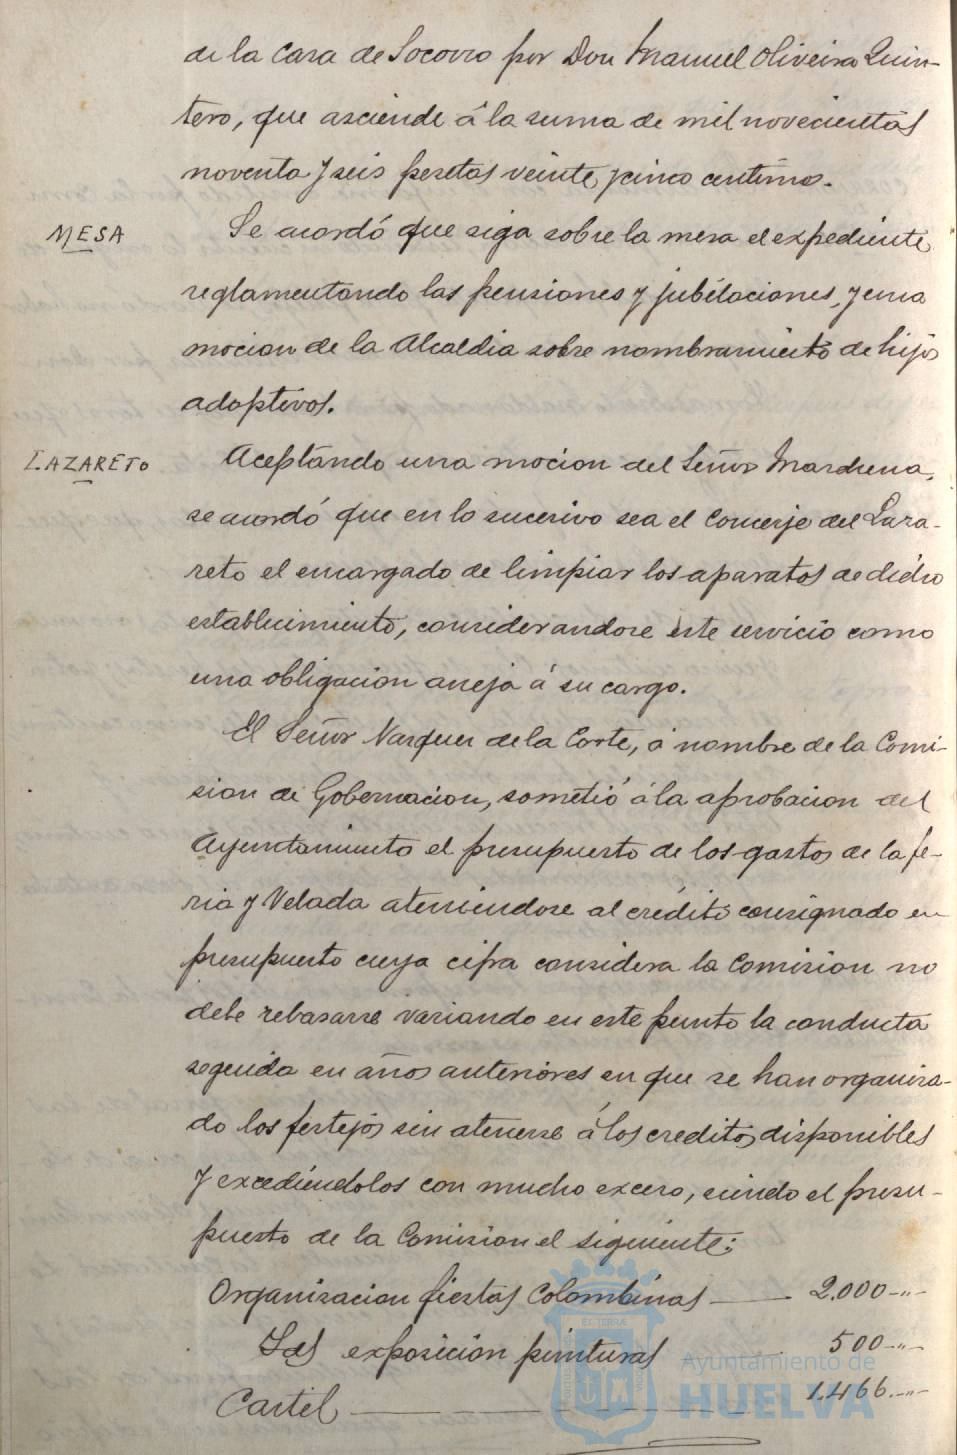 de la Casa de Socorro por Don Manuel Oliveira Quin-
tero, que asciende á la suma de mil novecientas
noventa y seis pesetas veinte y cinco centimos.
MESA
Se acordó que siga sobre la mesa el expediente
reglamentando las pensiones y jubilaciones, y una
mocion de la Alcaldia sobre nombramiento de hijos
adoptivos.
LAZARETO
Aceptando una mocion del Señor Marchena,
se acordó que en lo sucesivo sea el Conserje del Laza-
reto el encargado de limpiar los aparatos de dicho
establecimiento, considerandose este servicio como
una obligacion aneja á su cargo.
El Señor Vazquez de la Corte, á nombre de la Comi-
sion de Gobernacion, sometió á la aprobacion del
Ayuntamiento el presupuesto de los gastos de la fe-
ria y Velada ateniendose al crédito consignado en
presupuesto cuya cifra considera la Comision no
debe rebasarse variando en este punto la conducta
seguida en años anteriores en que se han organiza-
do los festejos sin atenerse á los creditos disponibles
y excediéndolos con mucho exceso, siendo el presu-
puesto de la Comision el siguiente:
Organizacion fiestas Colombinas — 2.000 -"-
exposición pinturas 500 -"-
Cartel — 1.466.-"-
Ayuntamiento de
HUELVA